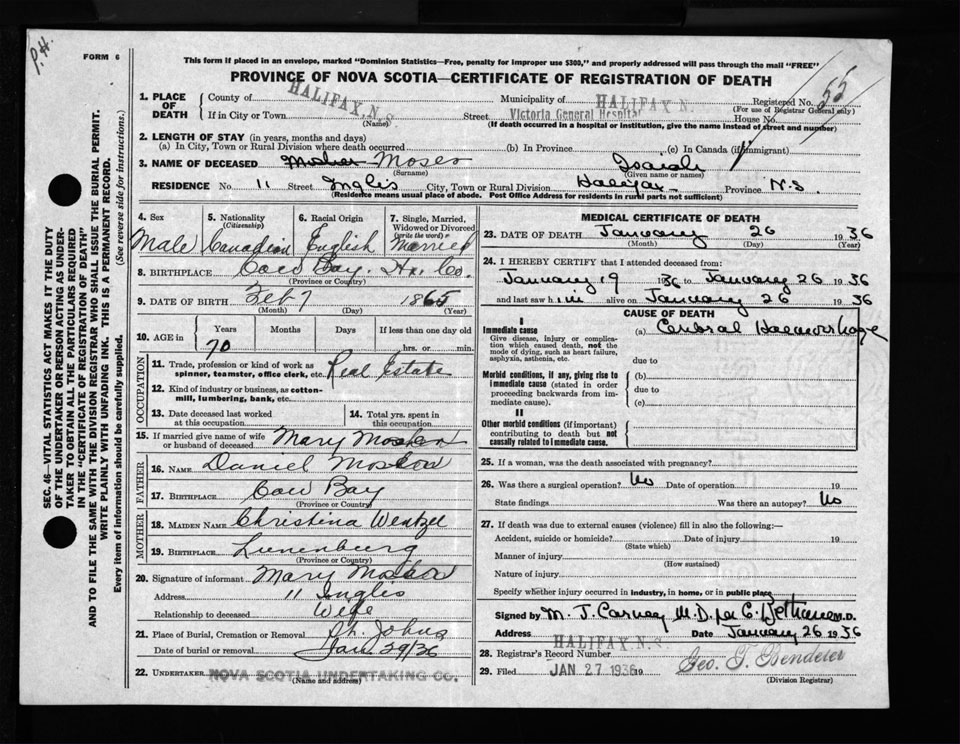 P.H.
FORM 6
This form if placed in an envelope, marked "Dominion Statistics—Free, penalty for improper use $300," and properly addressed will pass through the mail "FREE"
PROVINCE OF NOVA SCOTIA—CERTIFICATE OF REGISTRATION OF DEATH
1. PLACE OF DEATH
County of HALIFAX, N.S Municipality of HALIFAX N. Registered No. 55
(For use of Registrar General only)
If in City or Town (Name) Street Victoria General Hospital House No.
(If death occurred in a hospital or institution, give the name instead of street and number)
2. LENGTH OF STAY (in years, months and days)
(a) In City, Town or Rural Division where death occurred (b) In Province (c) In Canada (if immigrant)
3. NAME OF DECEASED Moses
(Surname) (Given name or names)
RESIDENCE No. 11 Street Inglis City, Town or Rural Division Halifax Province N.S.
(Residence means usual place of abode. Post Office Address for residents in rural parts not sufficient)
4. Sex 5. Nationality (Citizenship) 6. Racial Origin 7. Single, Married, Widowed or Divorced (write the word)
Male Canadian English Married
8. BIRTHPLACE Cow Bay. Hx. Co.
(Province or Country)
9. DATE OF BIRTH Feb 7 1865
(Month) (Day) (Year)
10. AGE in Years Months Days If less than one day old
70 hrs. or min.
OCCUPATION
11. Trade, profession or kind of work as spinner, teamster, office clerk, etc. Real Estate
12. Kind of industry or business, as cotton-mill, lumbering, bank, etc.
13. Date deceased last worked at this occupation 14. Total yrs. spent in this occupation
15. If married give name of wife or husband of deceased Mary
FATHER
16. NAME Daniel
17. BIRTHPLACE Cow Bay
(Province or Country)
MOTHER
18. MAIDEN NAME Christina Wentzel
19. BIRTHPLACE Lunenburg
(Province or Country)
20. Signature of informant Mary
Address 11 Inglis
Relationship to deceased Wife
21. Place of Burial, Cremation or Removal St. Johns
Date of burial or removal Jan 29/36
22. UNDERTAKER NOVA SCOTIA UNDERTAKING CO.
(Name and address)
MEDICAL CERTIFICATE OF DEATH
23. DATE OF DEATH January 26 1936
(Month) (Day) (Year)
24. I HEREBY CERTIFY that I attended deceased from:
January 19 1936 to January 26 1936
and last saw him alive on January 26 1936
CAUSE OF DEATH
I
Immediate cause (a) Cerebral Haemorrhage
Give disease, injury or complication which caused death, not the mode of dying, such as heart failure, asphyxia, asthenia, etc.
due to
Morbid conditions, if any, giving rise to immediate cause (stated in order proceeding backwards from immediate cause). (b)
due to
(c)
II
Other morbid conditions (if important) contributing to death but not causally related to immediate cause.
25. If a woman, was the death associated with pregnancy?
26. Was there a surgical operation? No Date of operation 19
State findings Was there an autopsy? No
27. If death was due to external causes (violence) fill in also the following:—
Accident, suicide or homicide? Date of injury 19
(State which)
Manner of injury
(How sustained)
Nature of injury
Specify whether injury occurred in industry, in home, or in public place
Signed by M. J. Carney M.D. per M.D.
Address HALIFAX, N.S Date January 26 1936
28. Registrar's Record Number
29. Filed JAN 27 1936 19
(Division Registrar)
SEC. 46—VITAL STATISTICS ACT MAKES IT THE DUTY
OF THE UNDERTAKER OR PERSON ACTING AS UNDER-
TAKER TO OBTAIN ALL THE PARTICULARS REQUIRED
IN THE "CERTIFICATE OF REGISTRATION OF DEATH"
AND TO FILE THE SAME WITH THE DIVISION REGISTRAR WHO SHALL ISSUE THE BURIAL PERMIT.
WRITE PLAINLY WITH UNFADING INK. THIS IS A PERMANENT RECORD.
Every item of information should be carefully supplied. (See reverse side for instructions.)